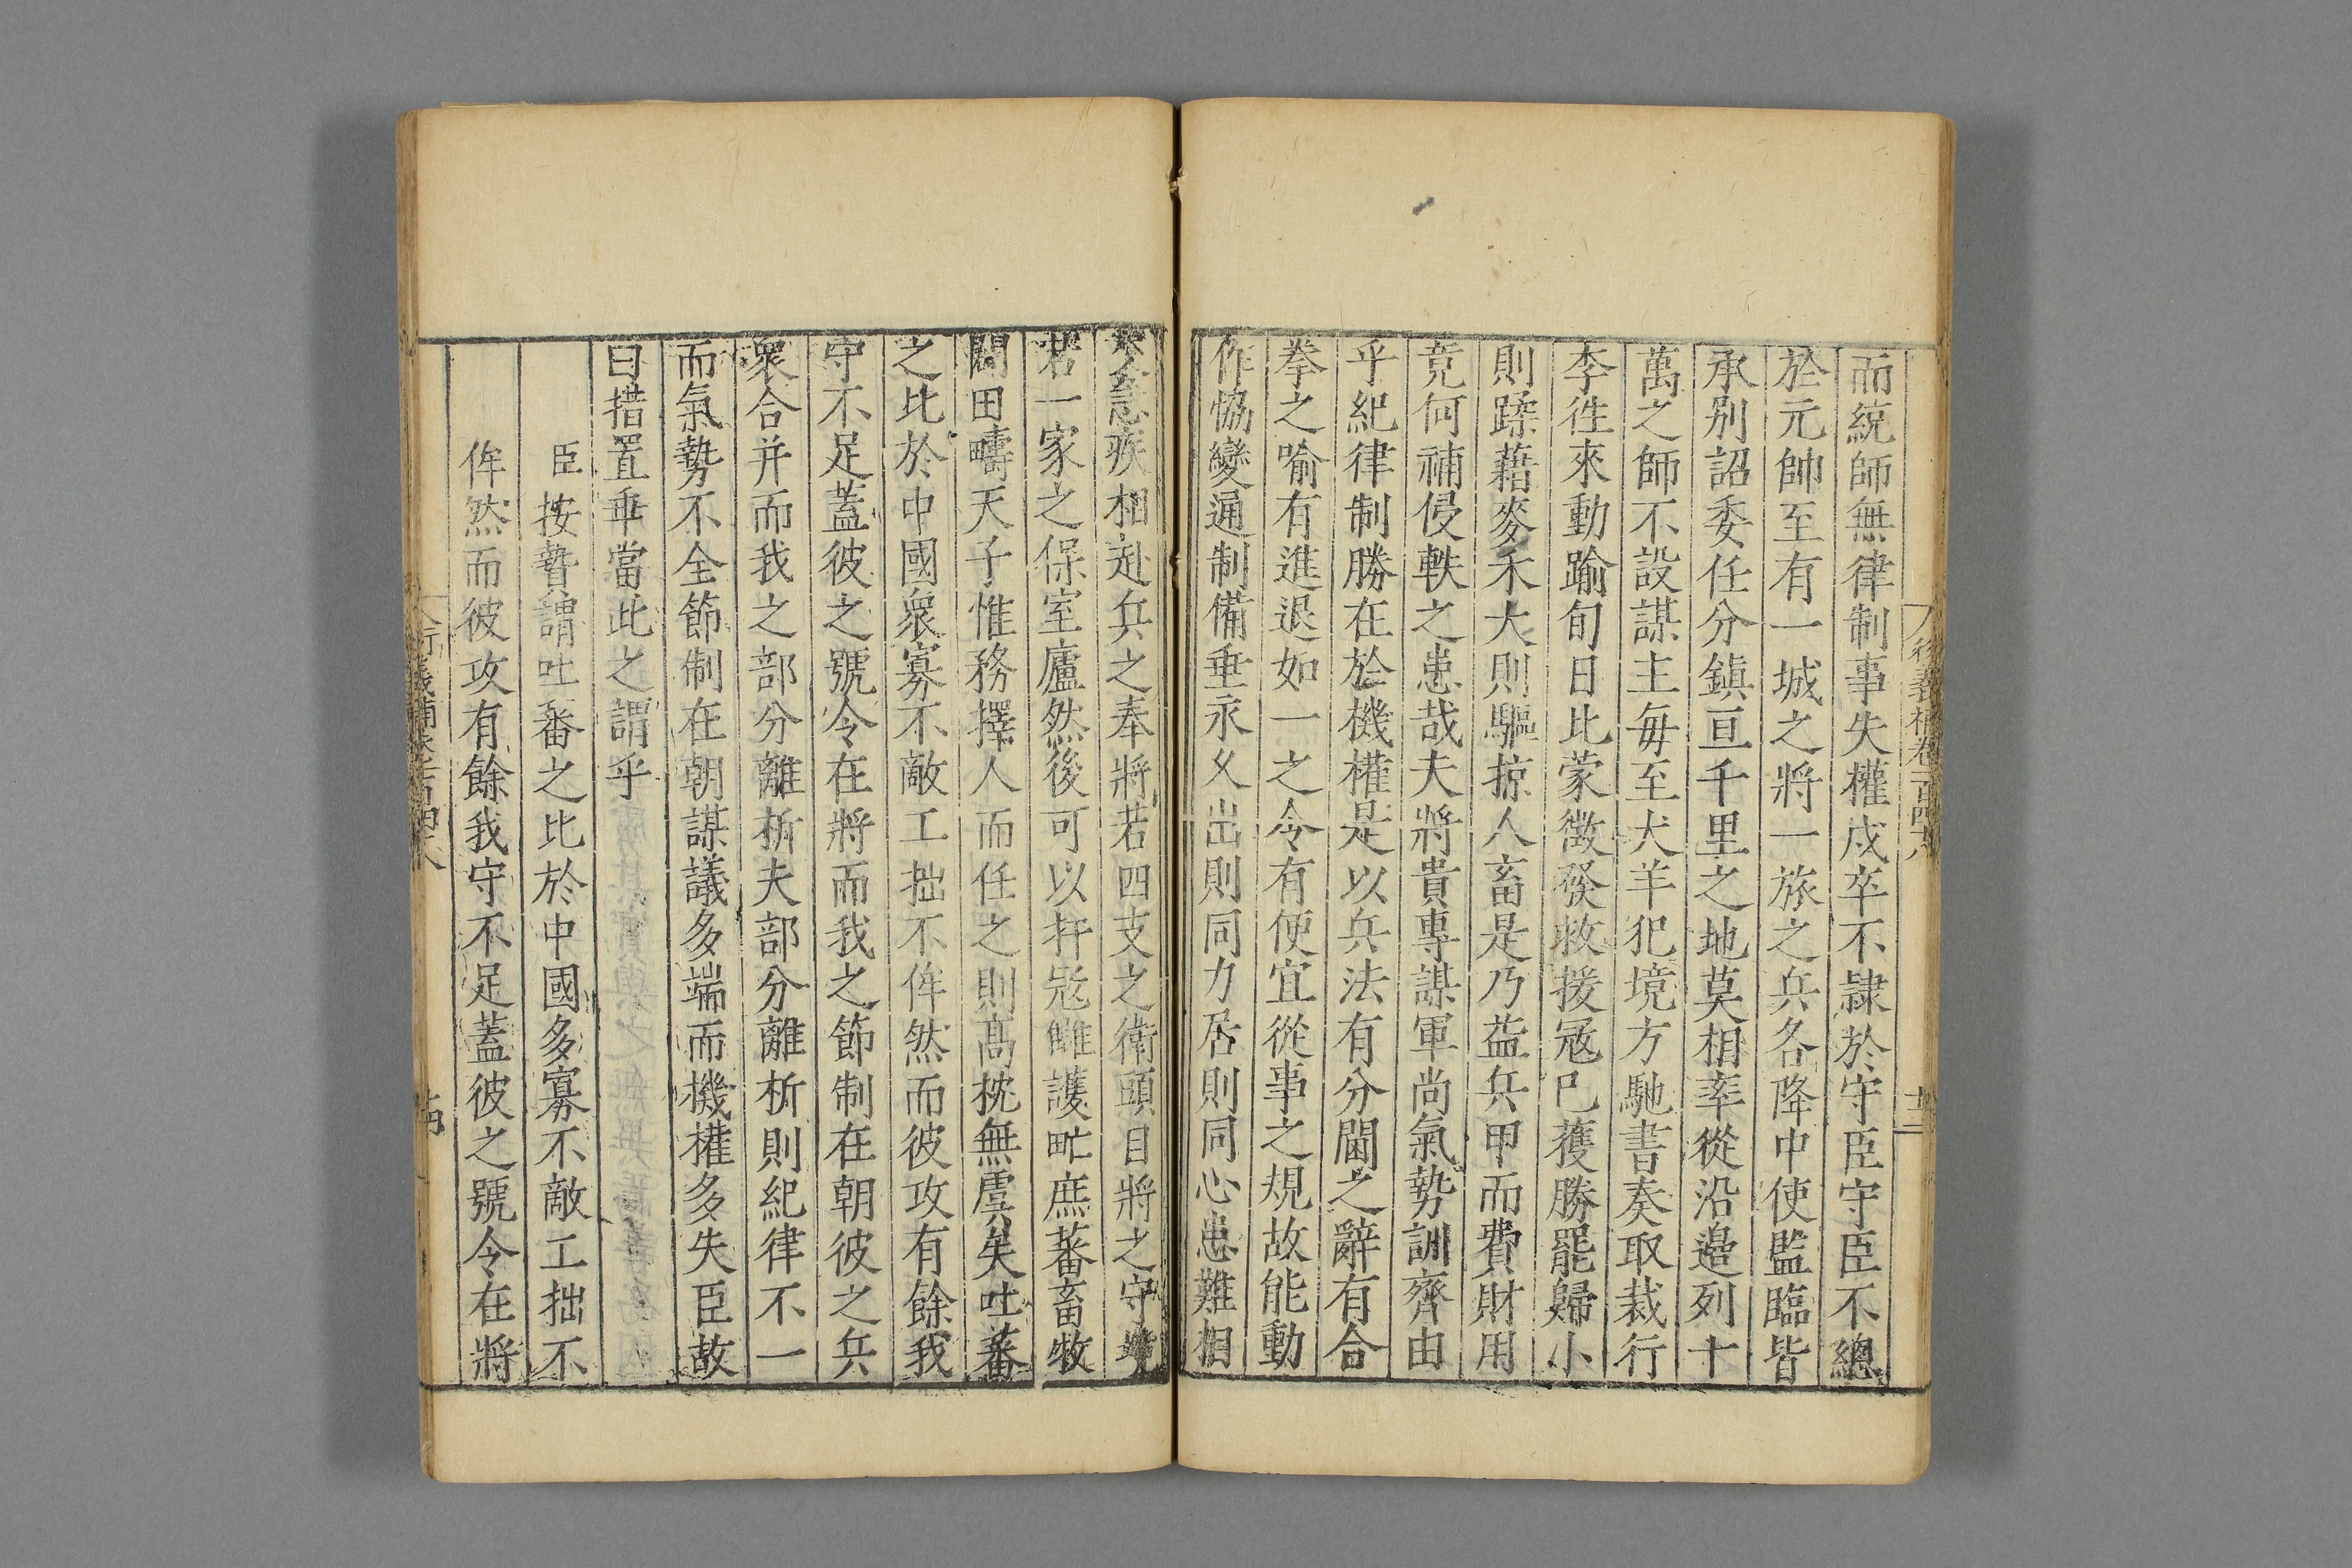 而統師無律制事失權戍卒不隷於守臣守臣不總
於元帥至有一城之將一旅之兵各降中使監臨皆
承别詔委任分鎮亘千里之地莫相率從沿邉列十
萬之師不設謀主毎至犬羊犯境方馳書奏取裁行
李徃來動踰旬日比蒙徴發救援冦已獲勝罷歸小
則蹂藉麥禾大則驅掠人畜是乃益兵甲而費財用
竟何補侵軼之患哉夫將貴專謀軍尚氣勢訓齊由
乎紀律制勝在於機權是以兵法有分閫之辭有合
拳之喻有進退如一之令有便宜從事之規故能動
作恊變通制備垂永乆出則同力居則同心患難相
急疾相赴兵之奉將若四支之衛頭目將之守境
若一家之保室廬然後可以扞冦讎護甿庶蕃畜牧
闢田疇天子惟務擇人而任之則髙枕無虞矣吐蕃
之比於中國衆寡不敵工拙不侔然而彼攻有餘我
守不足蓋彼之號令在將而我之節制在朝彼之兵
衆合并而我之部分離析夫部分離析則紀律不一
而氣勢不全節制在朝謀議多端而機權多失臣故
曰措置乖當此之謂乎
臣按贄謂吐蕃之比於中國多寡不敵工拙不
侔然而彼攻有餘我守不足蓋彼之號令在將